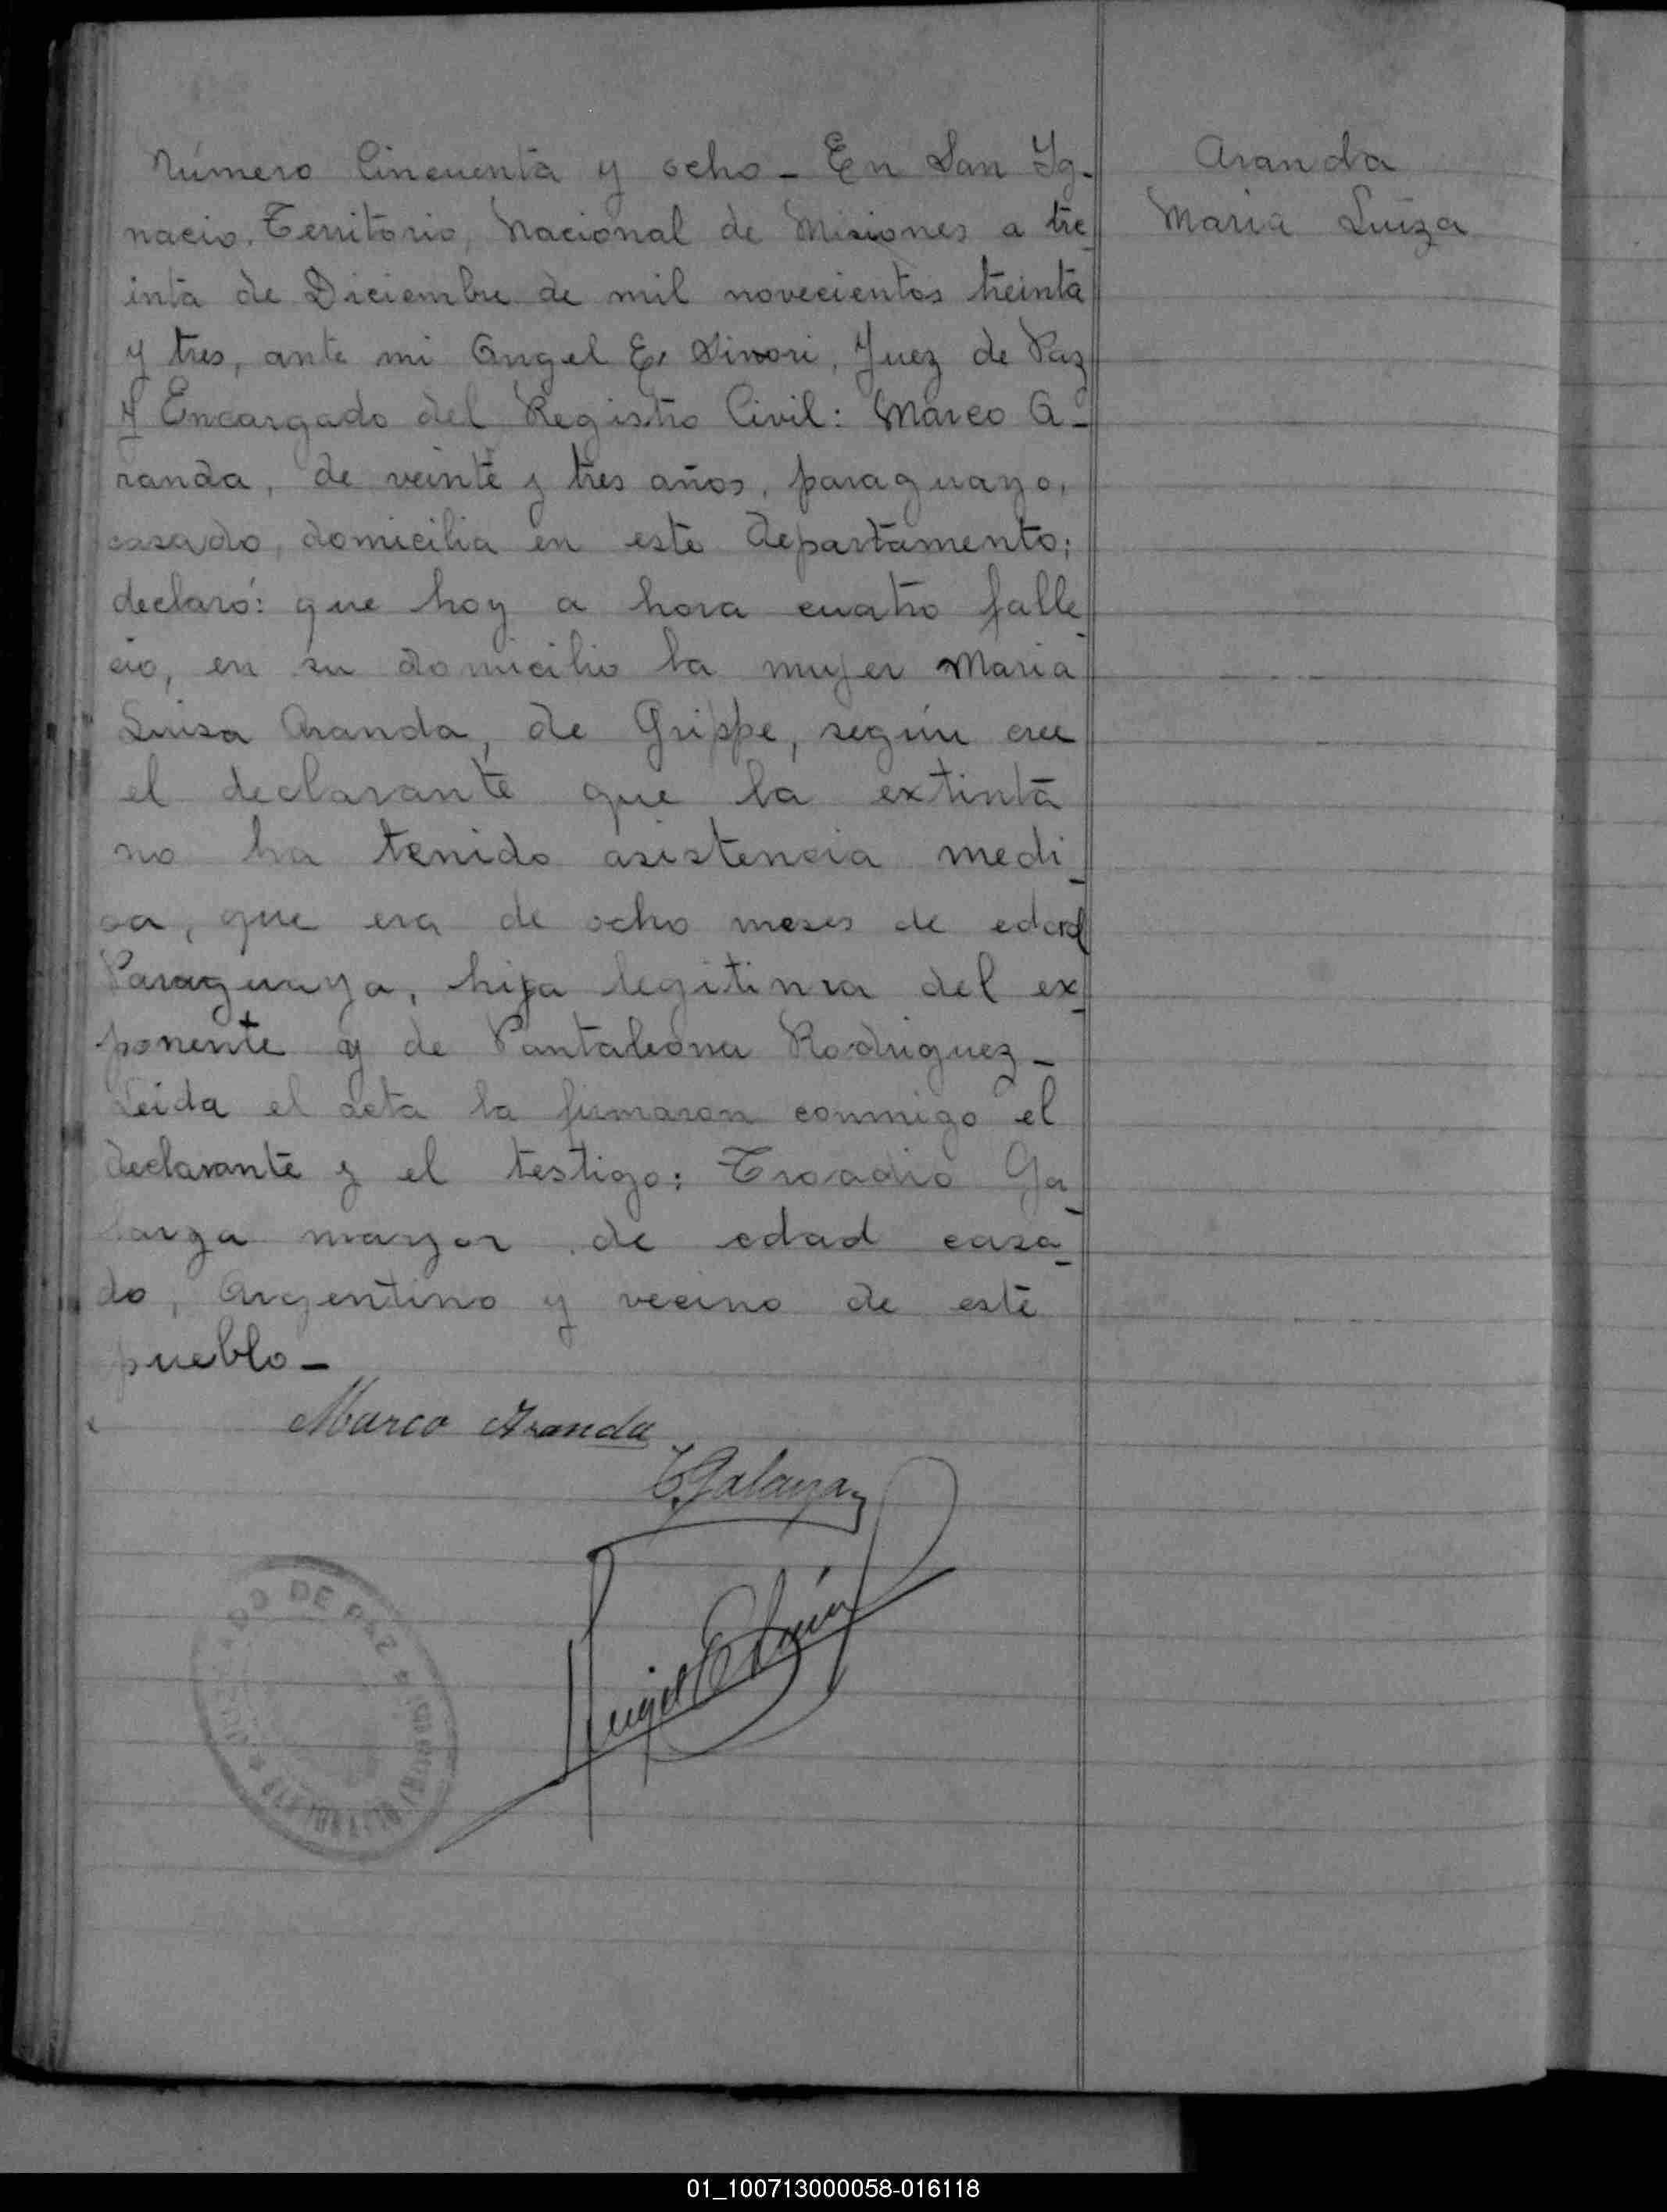 Número Cincuenta y ocho - En San Ig-
nacio. Territorio, Nacional de Misiones a tre
inta de Diciembre de mil novecientos treinta
y tres, ante mi Angel E. Sivori, Juez de Paz
y Encargado del Registro Civil: Marco A-
randa, de veinte y tres años, paraguayo,
casado, domicilia en este departamento;
declaró: que hoy a hora cuatro falle
cio, en su domicilio la mujer Maria
Luisa Aranda, de Grippe, según cree
el declarante que la extinta
no ha tenido asistencia medi-
ca, que era de ocho meses de edad
Paraguaya, hija legitima del ex-
ponente y de Pantaleona Rodriguez -
Leida el acta la firmaron conmigo el
declarante y el testigo: Troadio Ga-
larza mayor de edad casa-
do, Argentino y vecino de este
pueblo -
Aranda
Maria Luiza
Marco Aranda
T. Galarza
Angel E Sivori
JUZGADO DE PAZ
SAN IGNACIO (Misiones)
01_100713000058-016118